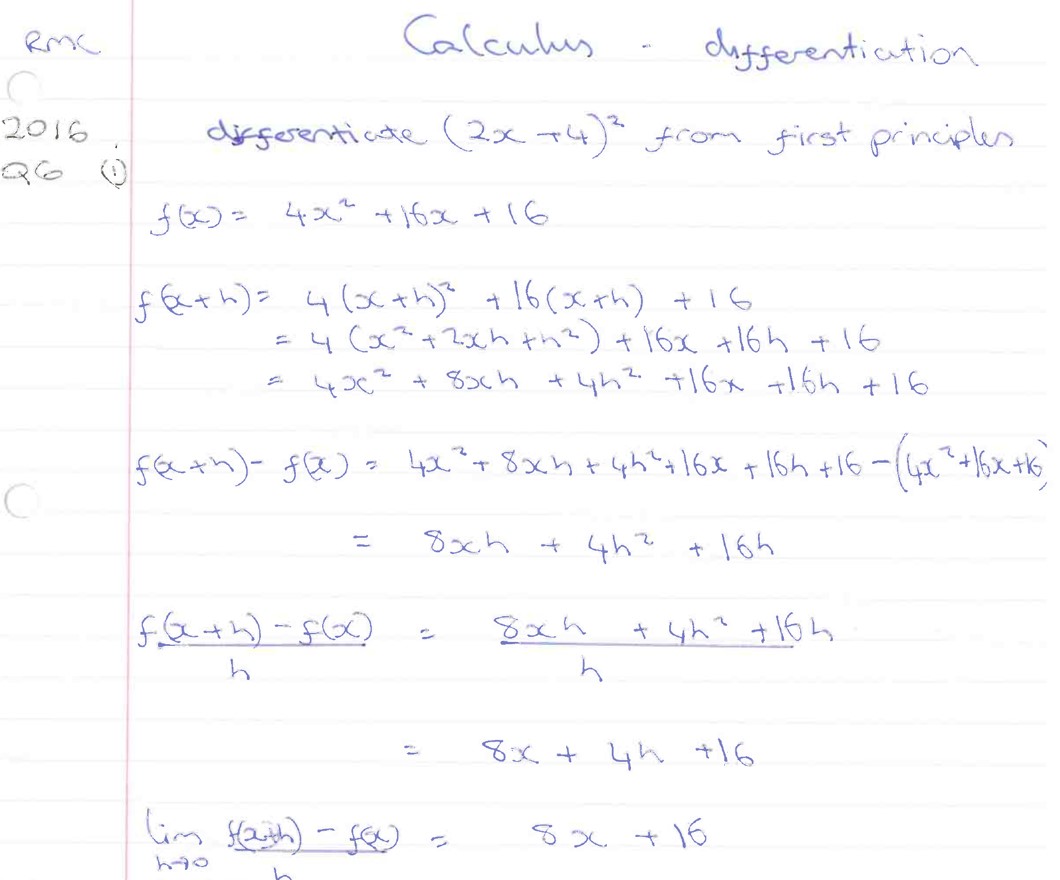 RMC
Calculus - differentiation
2016
Q6 (i)
differenticate (2x+4)² from first principles
f(x) = 4x² + 16x + 16
f(x+h) = 4(x+h)² + 16(x+h) + 16
= 4(x² + 2xh + h²) + 16x + 16h + 16
= 4x² + 8xh + 4h² + 16x + 16h + 16
f(x+h) - f(x) = 4x² + 8xh + 4h² + 16x + 16h + 16 - (4x² + 16x + 16)
= 8xh + 4h² + 16h
f(x+h) - f(x) = 8xh + 4h² + 16h
h h
= 8x + 4h + 16
lim f(x+h) - f(x) = 8x + 16
h→0 h